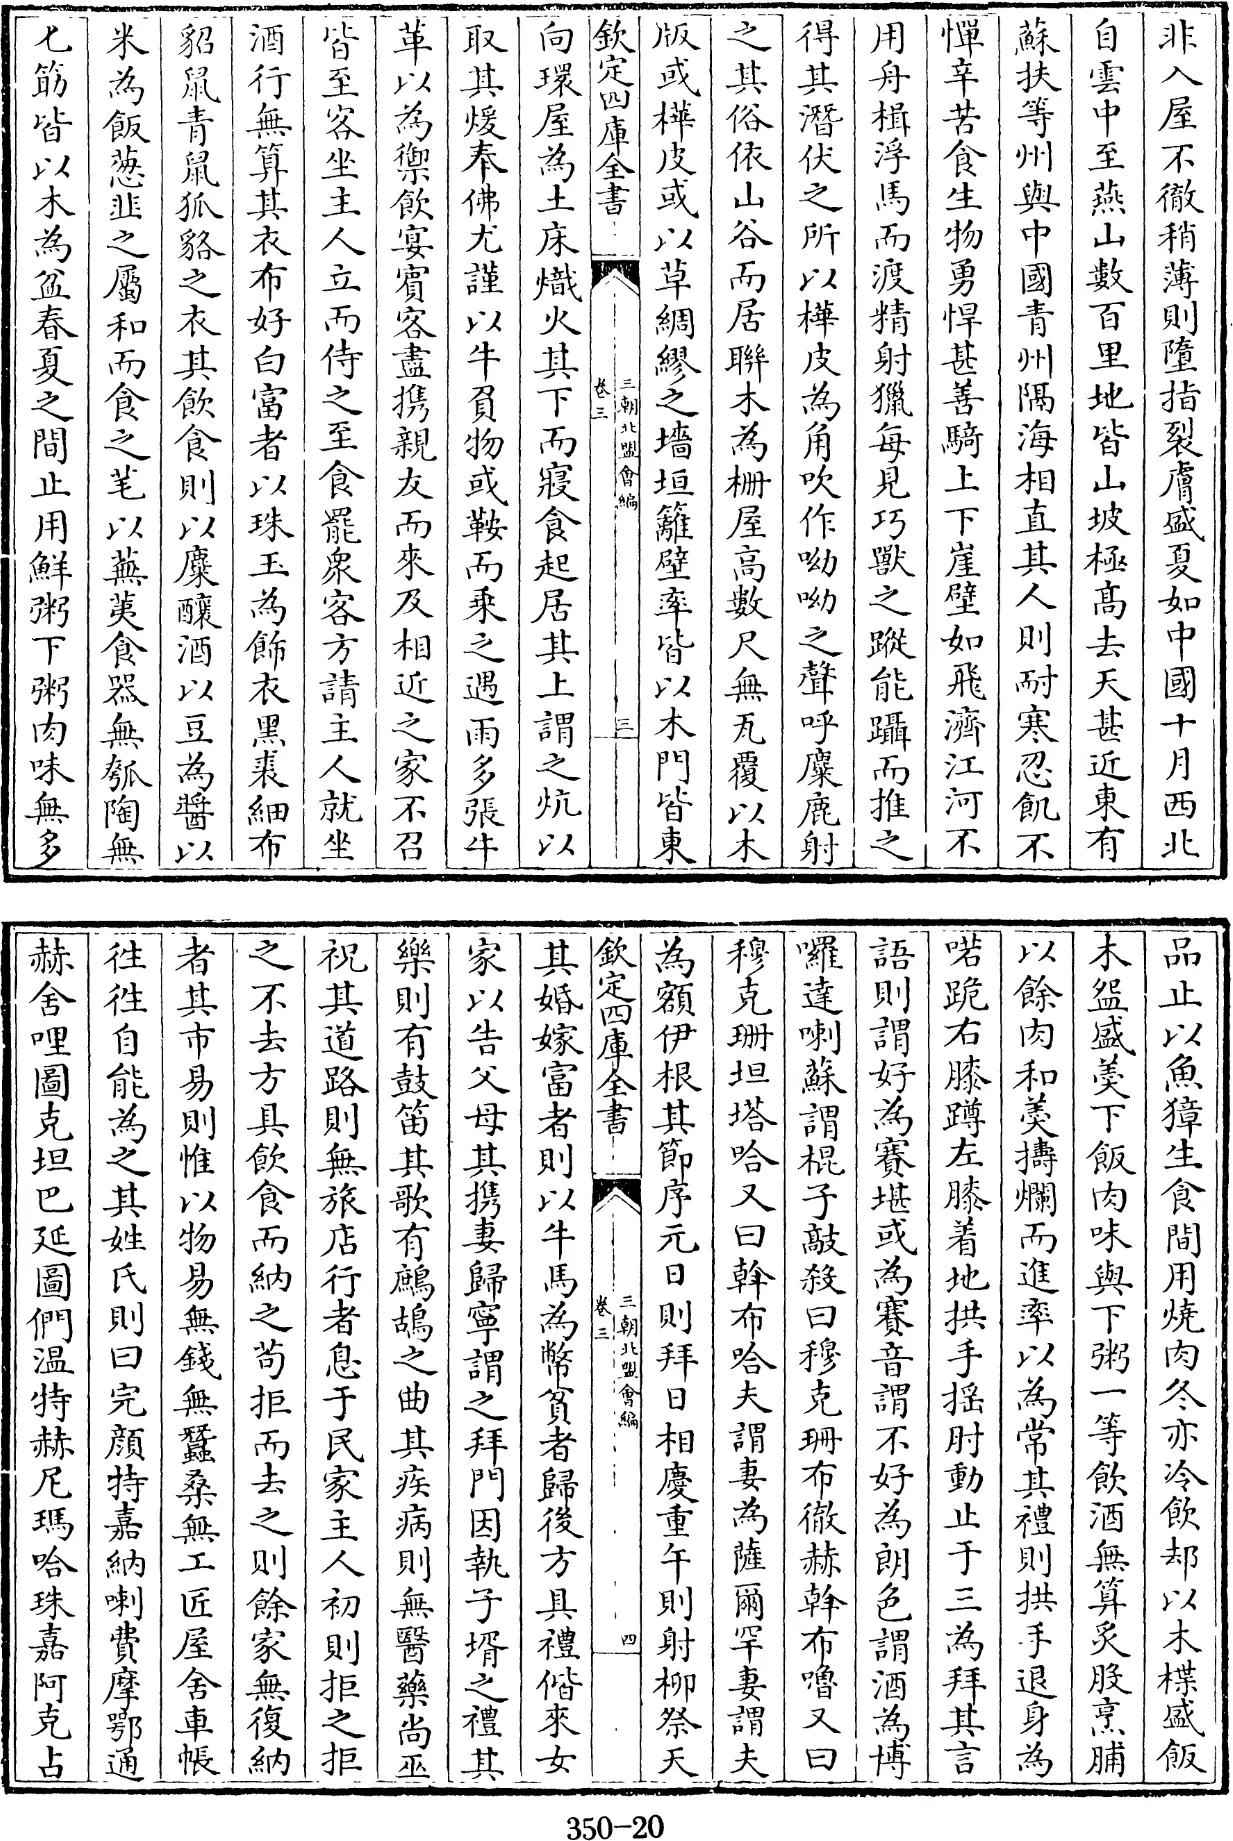 非入屋不徹稍薄則墮指裂膚盛夏如中國十月西北
自雲中至燕山數百里地皆山坡極髙去天甚近東有
蘇扶等州與中國青州隔海相直其人則耐寒忍飢不
憚辛苦食生物勇悍甚善騎上下崖壁如飛濟江河不
用舟楫浮馬而渡精射獵每見巧獸之蹤能躡而推之
得其潛伏之所以樺皮為角吹作呦呦之聲呼麋鹿射
之其俗依山谷而居聯木為栅屋高數尺無瓦覆以木
版或樺皮或以草綢繆之墻垣籬壁率皆以木門皆東
欽定四庫全書
三朝北盟會編
卷三
三
向環屋為土床熾火其下而寢食起居其上謂之炕以
取其煖奉佛尤謹以牛負物或鞍而乘之遇雨多張牛
革以為禦飲宴賓客盡携親友而來及相近之家不召
皆至客坐主人立而侍之至食罷衆客方請主人就坐
酒行無算其衣布好白富者以珠玉為飾衣黑裘細布
貂鼠青鼠狐貉之衣其飲食則以麋釀酒以豆為醬以
米為飯葱韭之屬和而食之芼以蕪荑食器無瓠陶無
匕筯皆以木為盆春夏之間止用鮮粥下粥肉味無多
品止以魚獐生食間用燒肉冬亦冷飲却以木楪盛飯
木盌盛羹下飯肉味與下粥一等飲酒無算炙股烹脯
以餘肉和羮擣爛而進率以為常其禮則拱手退身為
喏跪右膝蹲左膝着地拱手摇肘動止于三為拜其言
語則謂好為賽堪或為賽音謂不好為朗色謂酒為博
囉達喇蘇謂棍子敲殺曰穆克珊布徹赫斡布嚕又曰
穆克珊坦塔哈又曰斡布哈夫謂妻為薩爾罕妻謂夫
為額伊根其節序元日則拜日相慶重午則射柳祭天
欽定四庫全書
三朝北盟會編
卷三
四
其婚嫁富者則以牛馬為幣貧者歸後方具禮偕來女
家以告父母其携妻歸寧謂之拜門因執子壻之禮其
樂則有鼓笛其歌有鷓鴣之曲其疾病則無醫藥尚巫
祝其道路則無旅店行者息于民家主人初則拒之拒
之不去方具飲食而納之苟拒而去之則餘家無復納
者其市易則惟以物易無錢無蠶桑無工匠屋舍車帳
徃徃自能為之其姓氏則曰完顔持嘉納喇費摩鄂通
赫舍哩圖克坦巴延圖們温特赫尼瑪哈珠嘉阿克占
350-20